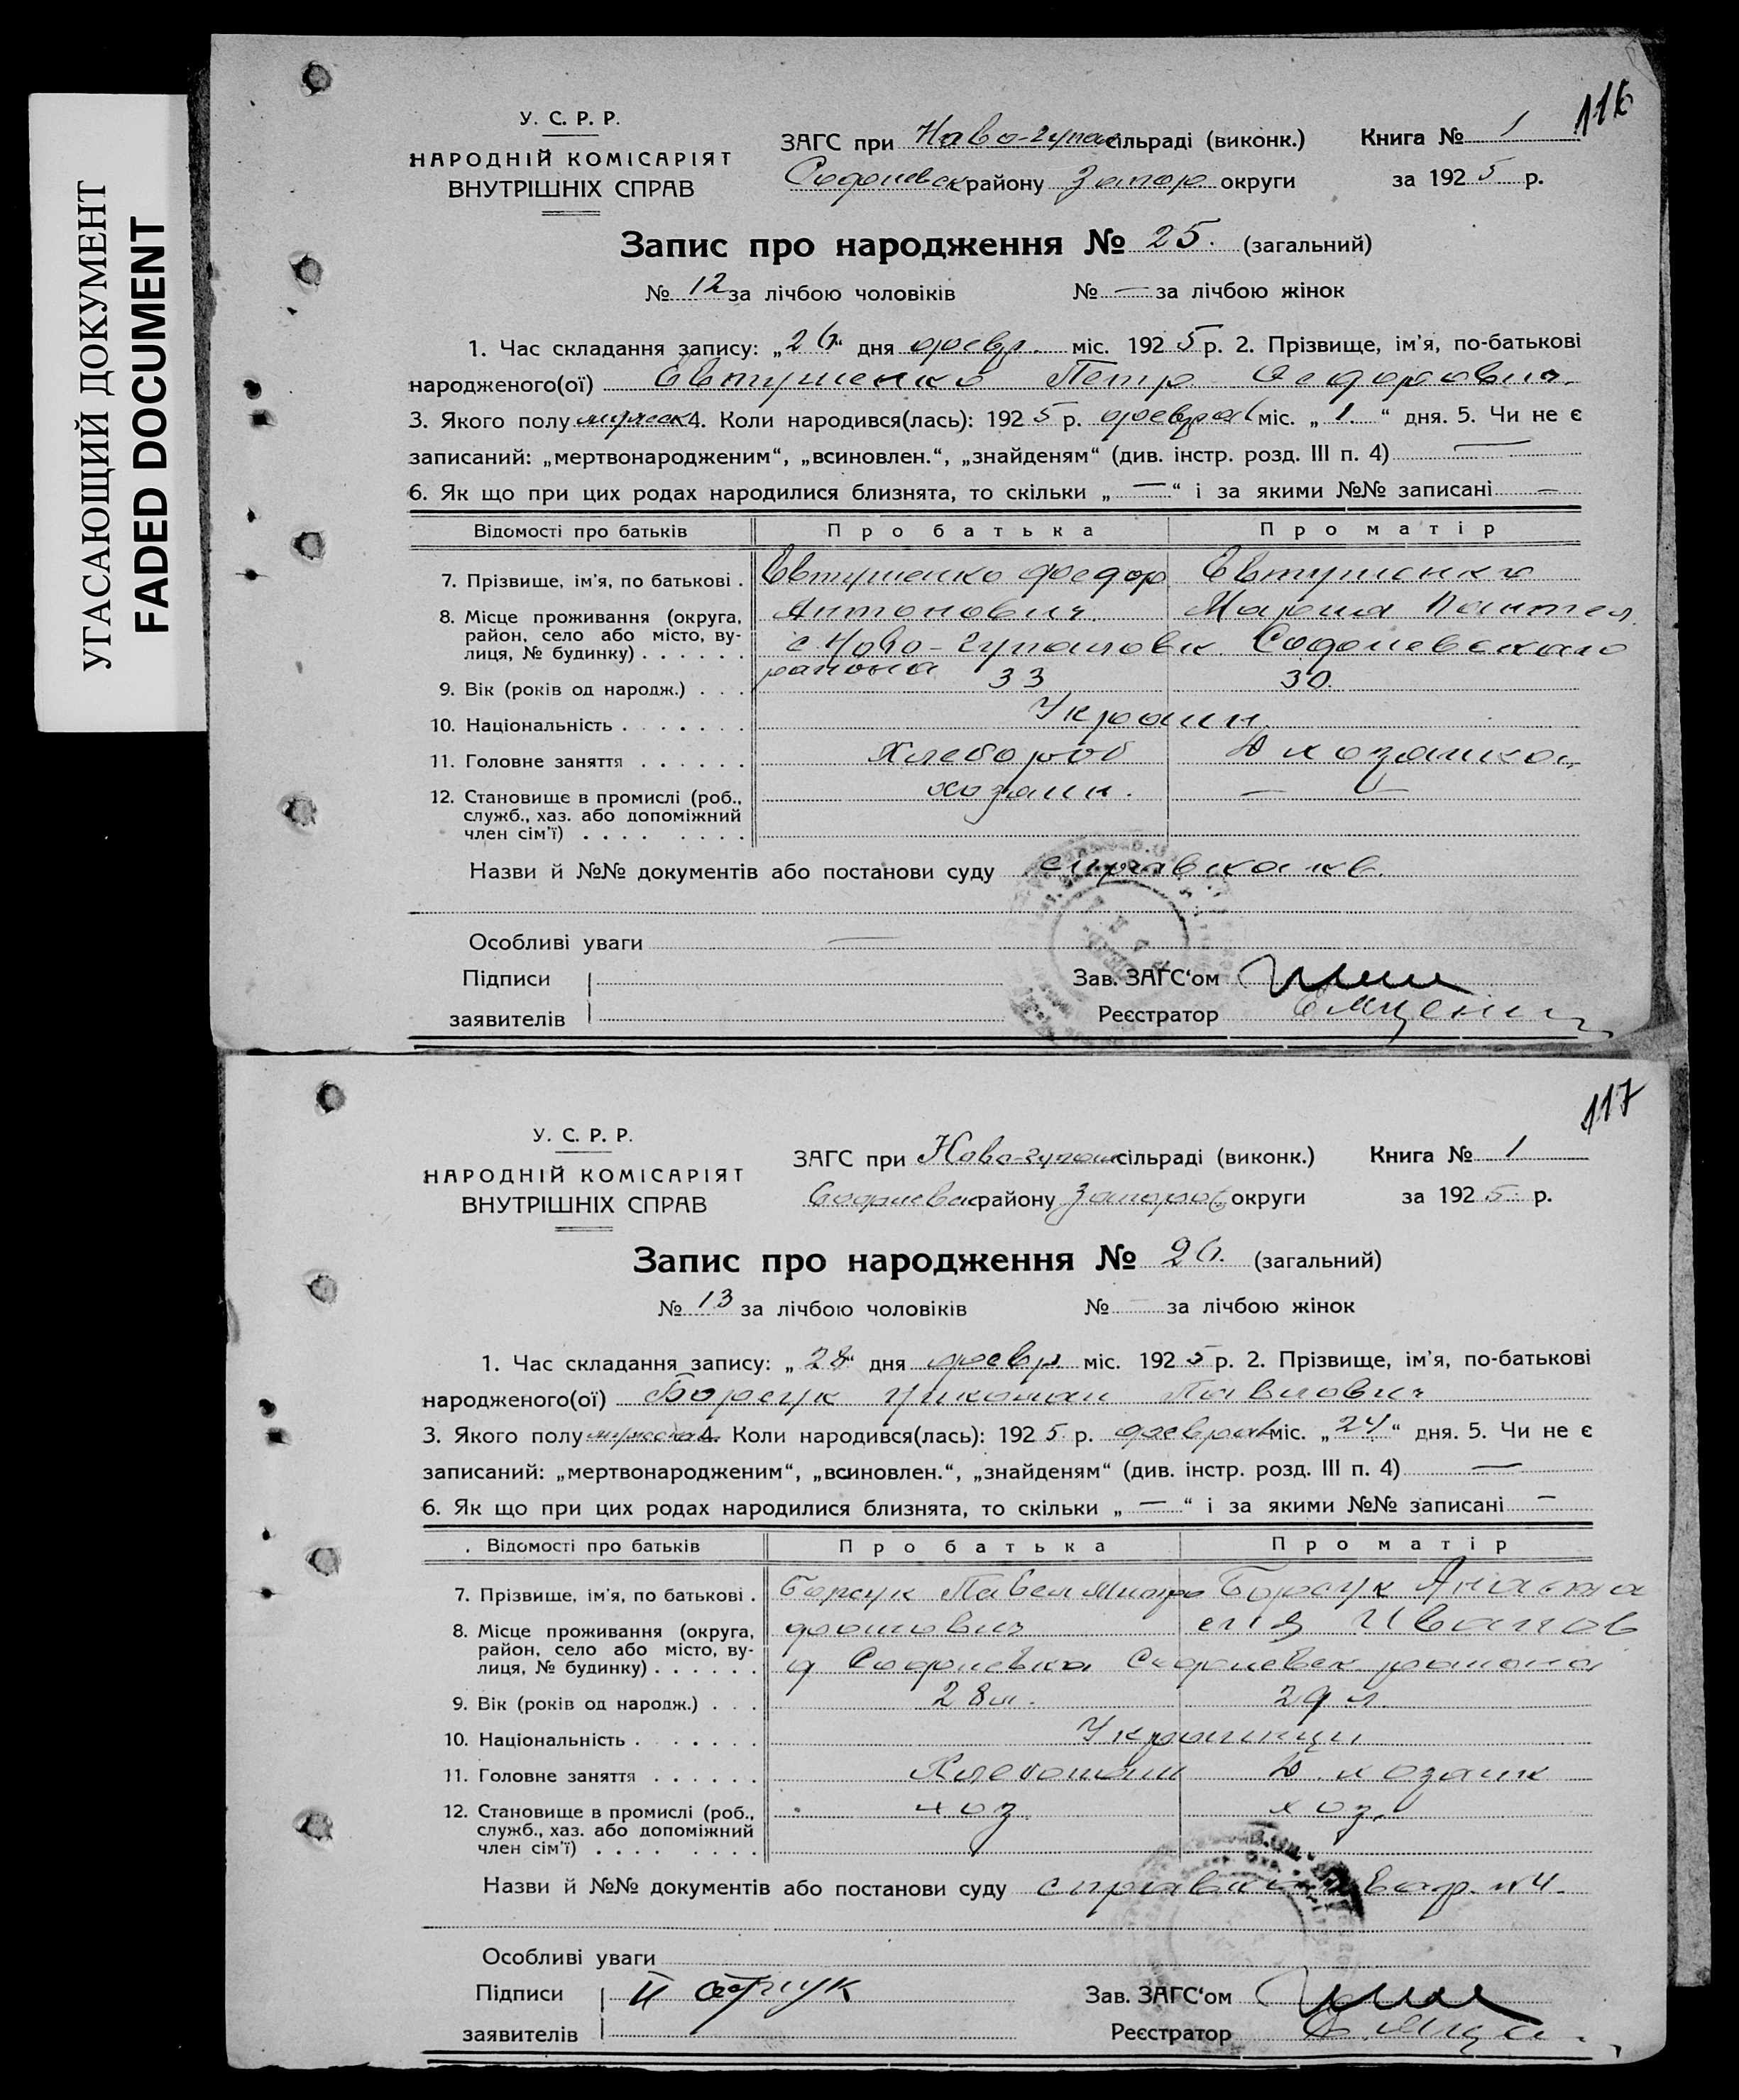 УГАСАЮЩИЙ ДОКУМЕНТ
FADED DOCUMENT
116
У. С. Р. Р.
НАРОДНІЙ КОМІСАРІЯТ
ВНУТРІШНІХ СПРАВ
ЗАГС при Ново-Гупал сільраді (виконк.)
Софиевск району Запор округи
Книга № 1
за 1925 р.
Запис про народження № 25. (загальний)
№ 12 за лічбою чоловіків № — за лічбою жінок
1. Час складання запису: „26“ дня февр. міс. 1925 р. 2. Прізвище, ім’я, по-батькові
народженого(ої) Евтушенко Петр Федорович
3. Якого полу мужск 4. Коли народився(лась): 1925 р. феврал міс. „1.“ дня. 5. Чи не є
записаний: „мертвонародженим“, „всиновлен.“, „знайденям“ (див. інстр. розд. III п. 4) —
6. Як що при цих родах народилися близнята, то скільки „—“ і за якими №№ записані —
Відомості про батьків Про батька Про матір
7. Прізвище, ім’я, по батькові . Евтушенко Федор Евтушенко
8. Місце проживання (округа, район, село або місто, вулиця, № будинку) . . . . . . Антонович. Мария Пантел.
с Ново-Гупаловк Софиевскаго
района
9. Вік (років од народж.) . . . 33 30.
10. Національність . . . . . . . Украин.
11. Головне заняття . . . . . . Хлебороб Д хозяйка
12. Становище в промислі (роб., служб., хаз. або допоміжний член сім’ї) . . . . . . . . хозяин. — " —
Назви й №№ документів або постанови суду справка
Особливі уваги —
Підписи
заявителів
Зав. ЗАГС‘ом
Реєстратор
117
У. С. Р. Р.
НАРОДНІЙ КОМІСАРІЯТ
ВНУТРІШНІХ СПРАВ
ЗАГС при Ново-Гупал сільраді (виконк.)
Софиевск району Запорож округи
Книга № 1
за 1925 р.
Запис про народження № 26. (загальний)
№ 13 за лічбою чоловіків № — за лічбою жінок
1. Час складання запису: „28“ дня февр. міс. 1925 р. 2. Прізвище, ім’я, по-батькові
народженого(ої) Борсук Николай Павлович
3. Якого полу мужск 4. Коли народився(лась): 1925 р. феврал міс. „24“ дня. 5. Чи не є
записаний: „мертвонародженим“, „всиновлен.“, „знайденям“ (див. інстр. розд. III п. 4) —
6. Як що при цих родах народилися близнята, то скільки „—“ і за якими №№ записані —
Відомості про батьків Про батька Про матір
7. Прізвище, ім’я, по батькові . Борсук Павел Митро Борсук Анаста
8. Місце проживання (округа, район, село або місто, вулиця, № будинку) . . . . . . фанович сия Иванов
Софиевка Софиевск района
9. Вік (років од народж.) . . . 28 л. 29 л.
10. Національність . . . . . . . Украинци
11. Головне заняття . . . . . . Хлебопаш Д. хозяйк
12. Становище в промислі (роб., служб., хаз. або допоміжний член сім’ї) . . . . . . . . хоз. хоз.
Назви й №№ документів або постанови суду справка № 4.
Особливі уваги
Підписи
заявителів
Зав. ЗАГС‘ом
Реєстратор